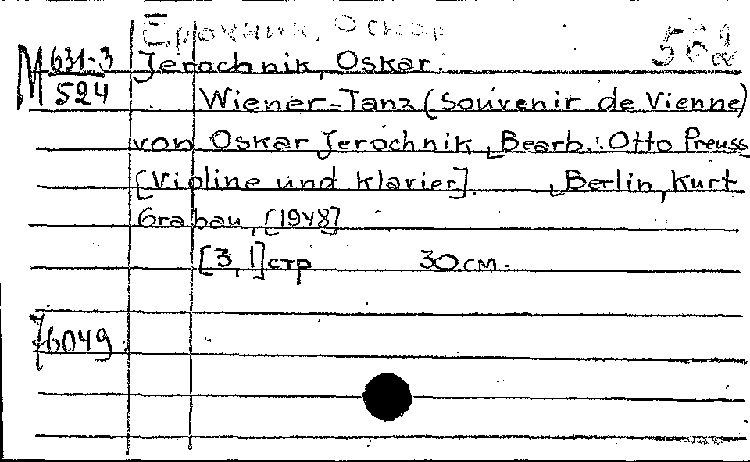 Ерохник, Оскар
М 631-3
524
Jerochnik, Oskar.
Wiener-Tanz (Souvenir de Vienne)
von Oskar Jerochnik, Bearb.: Otto Preuss
[Violine und Klavier]. Berlin, Kurt
Grabau, [1948]
[3, 1] стр 30 см.
76049